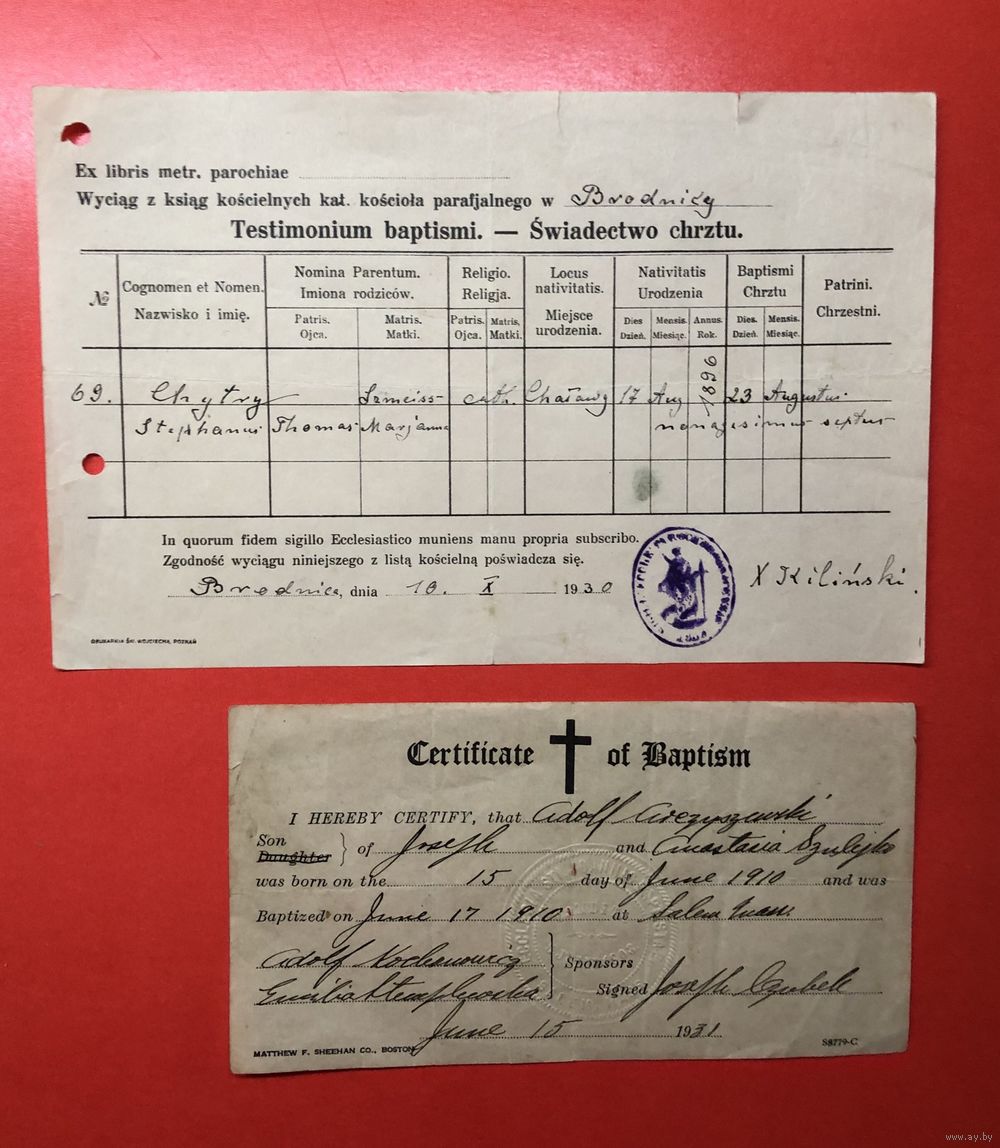 Ex libris metr. parochiae
Wyciąg z ksiąg kościelnych kat. kościoła parafjalnego w Brodnicy
Testimonium baptismi. — Świadectwo chrztu.
№ Cognomen et Nomen. Nazwisko i imię. Nomina Parentum. Imiona rodziców. Religio. Religja. Locus nativitatis. Miejsce urodzenia. Nativitatis Urodzenia Baptismi Chrztu Patrini. Chrzestni.
Patris. Ojca. Matris. Matki. Patris. Ojca. Matris. Matki. Dies Dzień. Mensis. Miesiąc. Annus. Rok. Dies. Dzień. Mensis. Miesiąc.
69. Chytry cath. Chaławy 17 Aug 1896 23 Augustus
Stephanus Thomas Marjanna nonagesimus septus
In quorum fidem sigillo Ecclesiastico muniens manu propria subscribo.
Zgodność wyciągu niniejszego z listą kościelną poświadcza się.
Brodnica, dnia 10. X 1930
X Kiliński.
DRUKARNIA ŚW. WOJCIECHA, POZNAŃ
Certificate of Baptism
I HEREBY CERTIFY, that Adolf
Son
Daughter } of Joseph and Anastasia Szulejko
was born on the 15 day of June 1910 and was
Baptized on June 17 1910 at Salem Mass.
Adolf Kochanowicz
Emilia
Sponsors
Signed Joseph Czubek
June 15 1931
MATTHEW F. SHEEHAN CO., BOSTON
S8779-C
www.ay.by